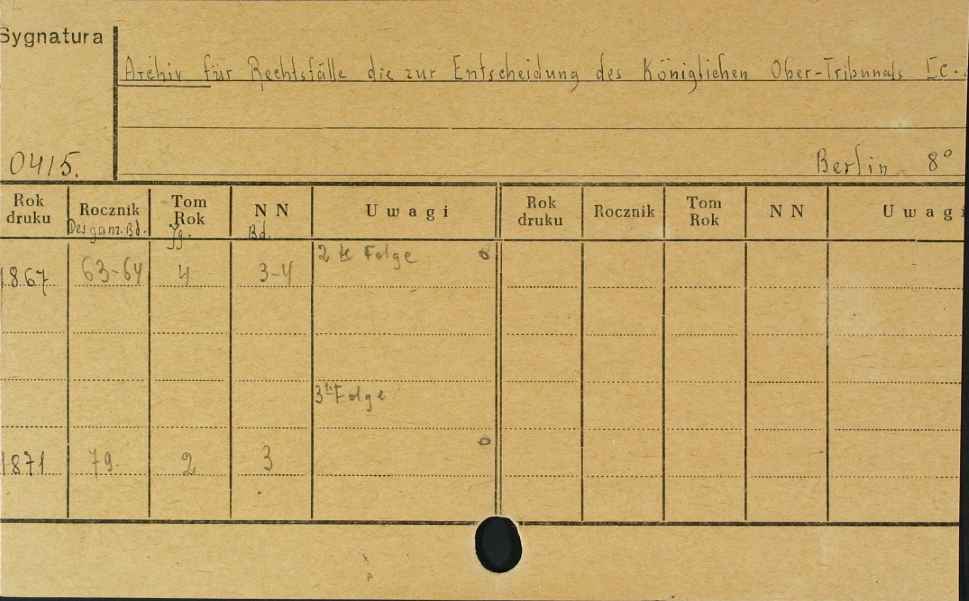 Sygnatura
Archiv für Rechtsfälle die zur Entscheidung des Königlichen Ober-Tribunals Ec..
0415.
Berlin 8°
Rok druku Rocznik Tom Rok N N Uwagi Rok druku Rocznik Tom Rok N N Uwagi
Des ganz. Bd. Jg. Bd.
2te Folge
1867 63-64 4 3-4
3te Folge
1871 79. 2 3